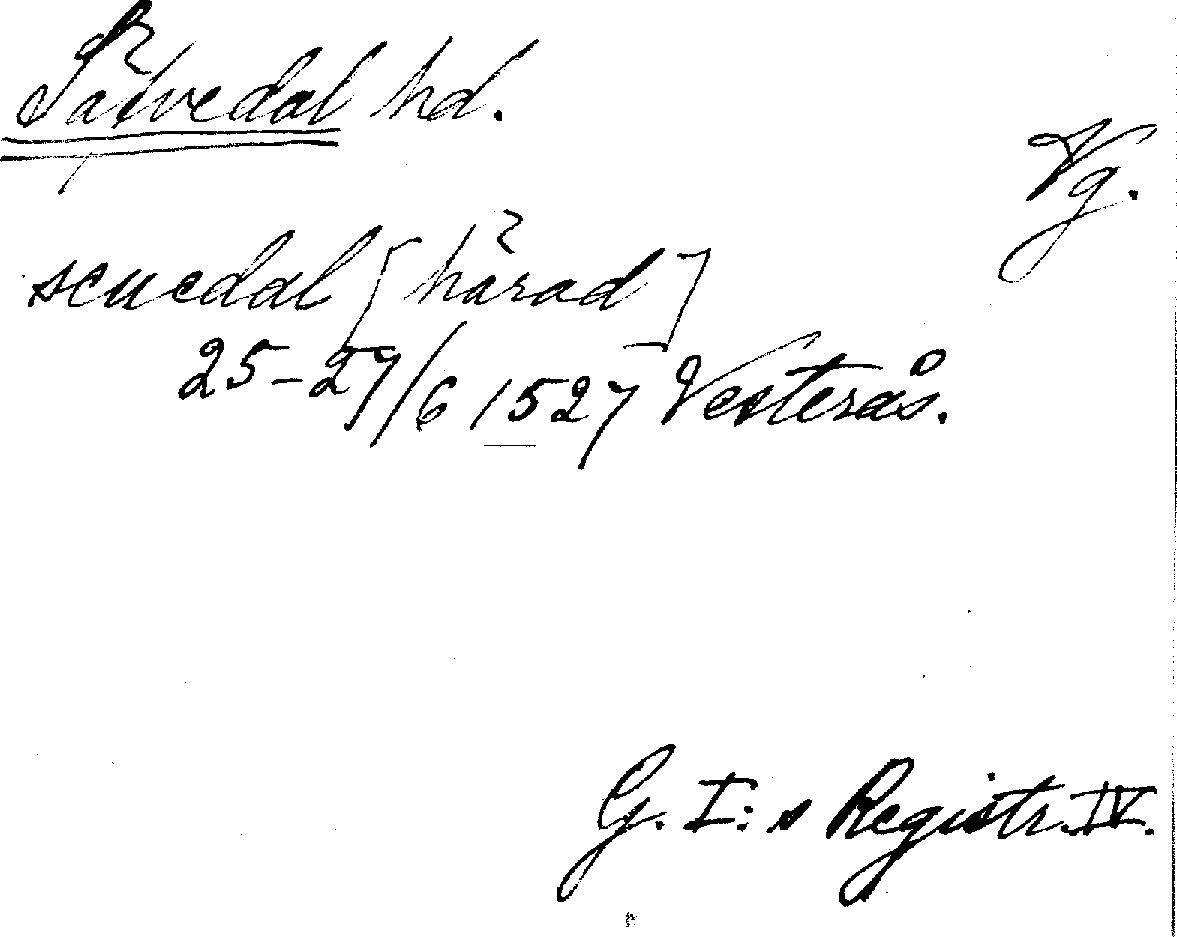 Sävedal hd.
Vg.
scuedal [härad]
25–27/6 1527 Vesterås.
G. I:s Registr. IV.